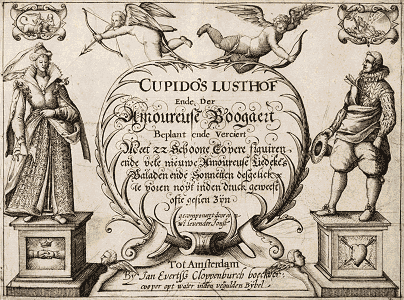 CUPIDO'S LUSTHOF
Ende Der
Amoureuse Boogaert
Beplant ende Verciert
Meet 22 Schoone Copere figuren
ende vele nieuwe Amoureuse Liedekes
Baladen ende Sonnetten desgelijckx
te voren noyt inden druck geweest
ofte gesien Zyn
gecomponeert door een
Tot Amsterdam
By Jan Evertss Cloppenburch boeckver
cooper opt water inden vergulden Bybel